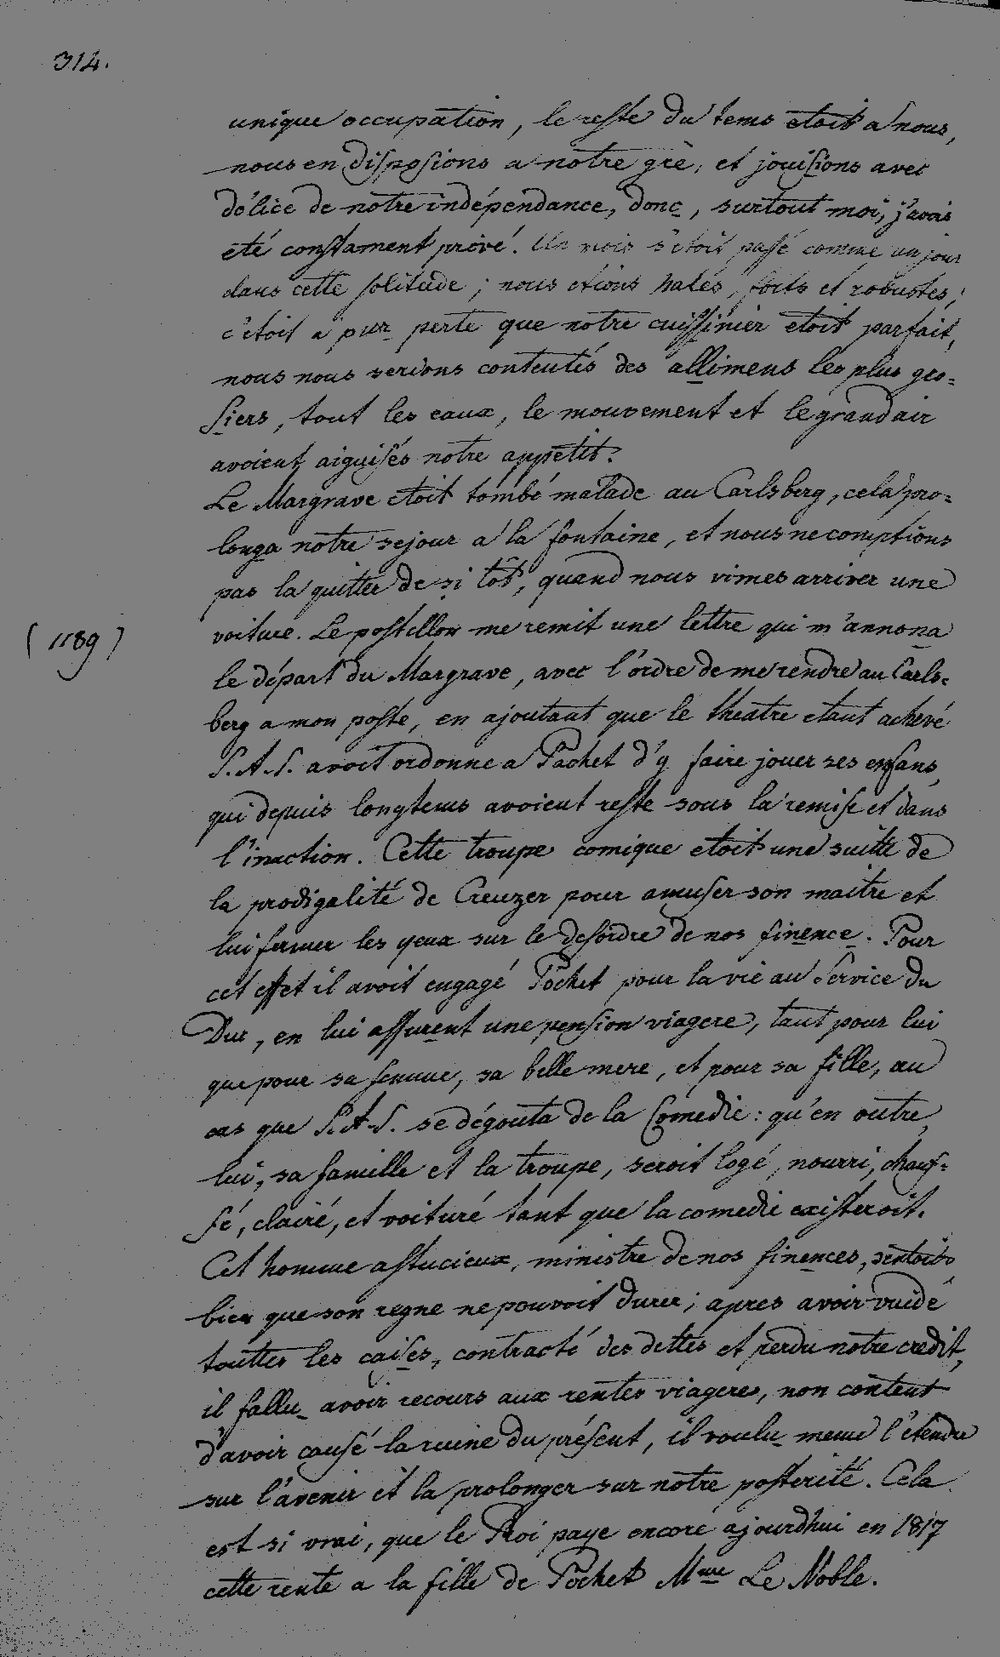 314.
unique occupation, le reste du tems etoit a nous,
nous en disposions a notre grè, et jouisions avec
délice de notre indépendance, donc, surtout moi, j'avois
eté constament privé. Un mois s'étoit passé comme un jour
dans cette solitude; nous etions halés, forts et robustes;
c'étoit a pur perte que notre cuissinier etoit parfait,
nous nous serions contentés des allimens les plus gro=
siers, tout les eaux, le mouvement et le grand air
avoient aiguisés notre appetit.
Le Margrave etoit tombé malade au Carlsberg, cela pro=
longa notre sejour a la fontaine, et nous ne comptions
pas la quitter de si tôt, quand nous vimes arriver une
voiture. Le postillon me remit une lettre qui m'annona
(1189)
le départ du Margrave, avec l'ordre de me rendre au Carls=
berg a mon poste, en ajoutant que le theatre etant achevé
S.A.S. avoit ordonné a Pochet d'y faire jouer ses enfans,
qui depuis longtems avoient resté sous la remise et dans
l'inaction. Cette troupe comique etoit une suitte de
la prodigalité de Creuzer pour amuser son maitre et
lui fermer les yeux sur le desordre de nos finence. Pour
cet effet il avoit engagé Pochet pour la vie au Service du
Duc, en lui assurent une pension viagere, tant pour lui
que pour sa femme, sa belle mere, et pour sa fille, au
cas que S.A.S. se dégouta de la Comedie: qu'en outre,
lui, sa famille et la troupe, seroit logé, nourri, chauf=
fé, clairé, et voituré tant que la comedie existeroit.
Cet homme astucieux, ministre de nos finences, sentoit
bien que son regne ne pouvoit durer; apres avoir vuidé
touttes les caises, contracté des dettes et perdu notre credit,
il fallu avoir recours aux rentes viageres, non content
d'avoir causé la ruine du présent, il voulu meme l'étendre
sur l'avenir et la prolonger sur notre posterité. Cela
est si vrai, que le Roi paye encore ajourdhui en 1817
cette rente a la fille de Pochet Mme Le Noble.